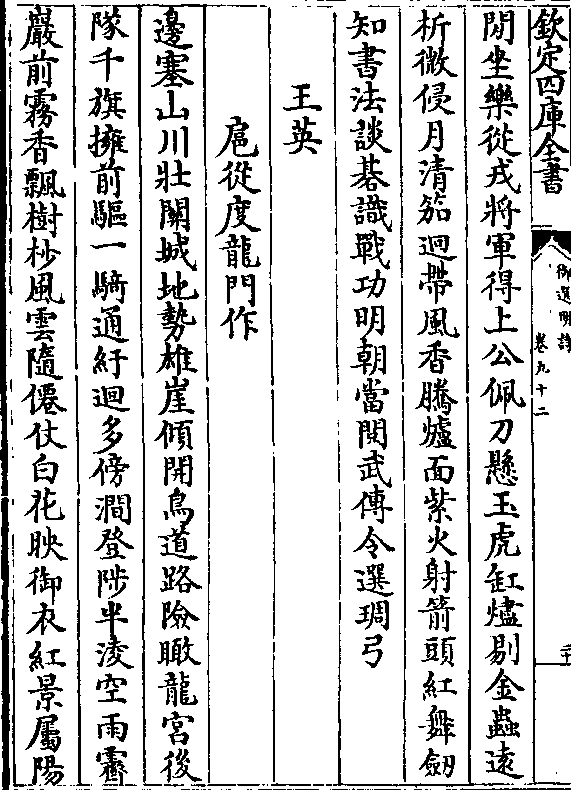 欽定四庫全書
御選明詩
卷九十二
閒坐樂從戎將軍得上公佩刀懸玉虎缸燼剔金蟲遠
柝微侵月清笳迥帶風香騰爐面紫火射箭頭紅舞劒
知書法談碁識戰功明朝當閱武傳令選琱弓
王英
扈從度龍門作
邊塞山川壯關城地勢雄崖傾開鳥道路險瞰龍宮後
隊千旗擁前驅一騎通紆迴多傍澗登陟半淩空雨霽
巖前霧香飄樹杪風雲隨僊仗白花映御衣紅景屬陽